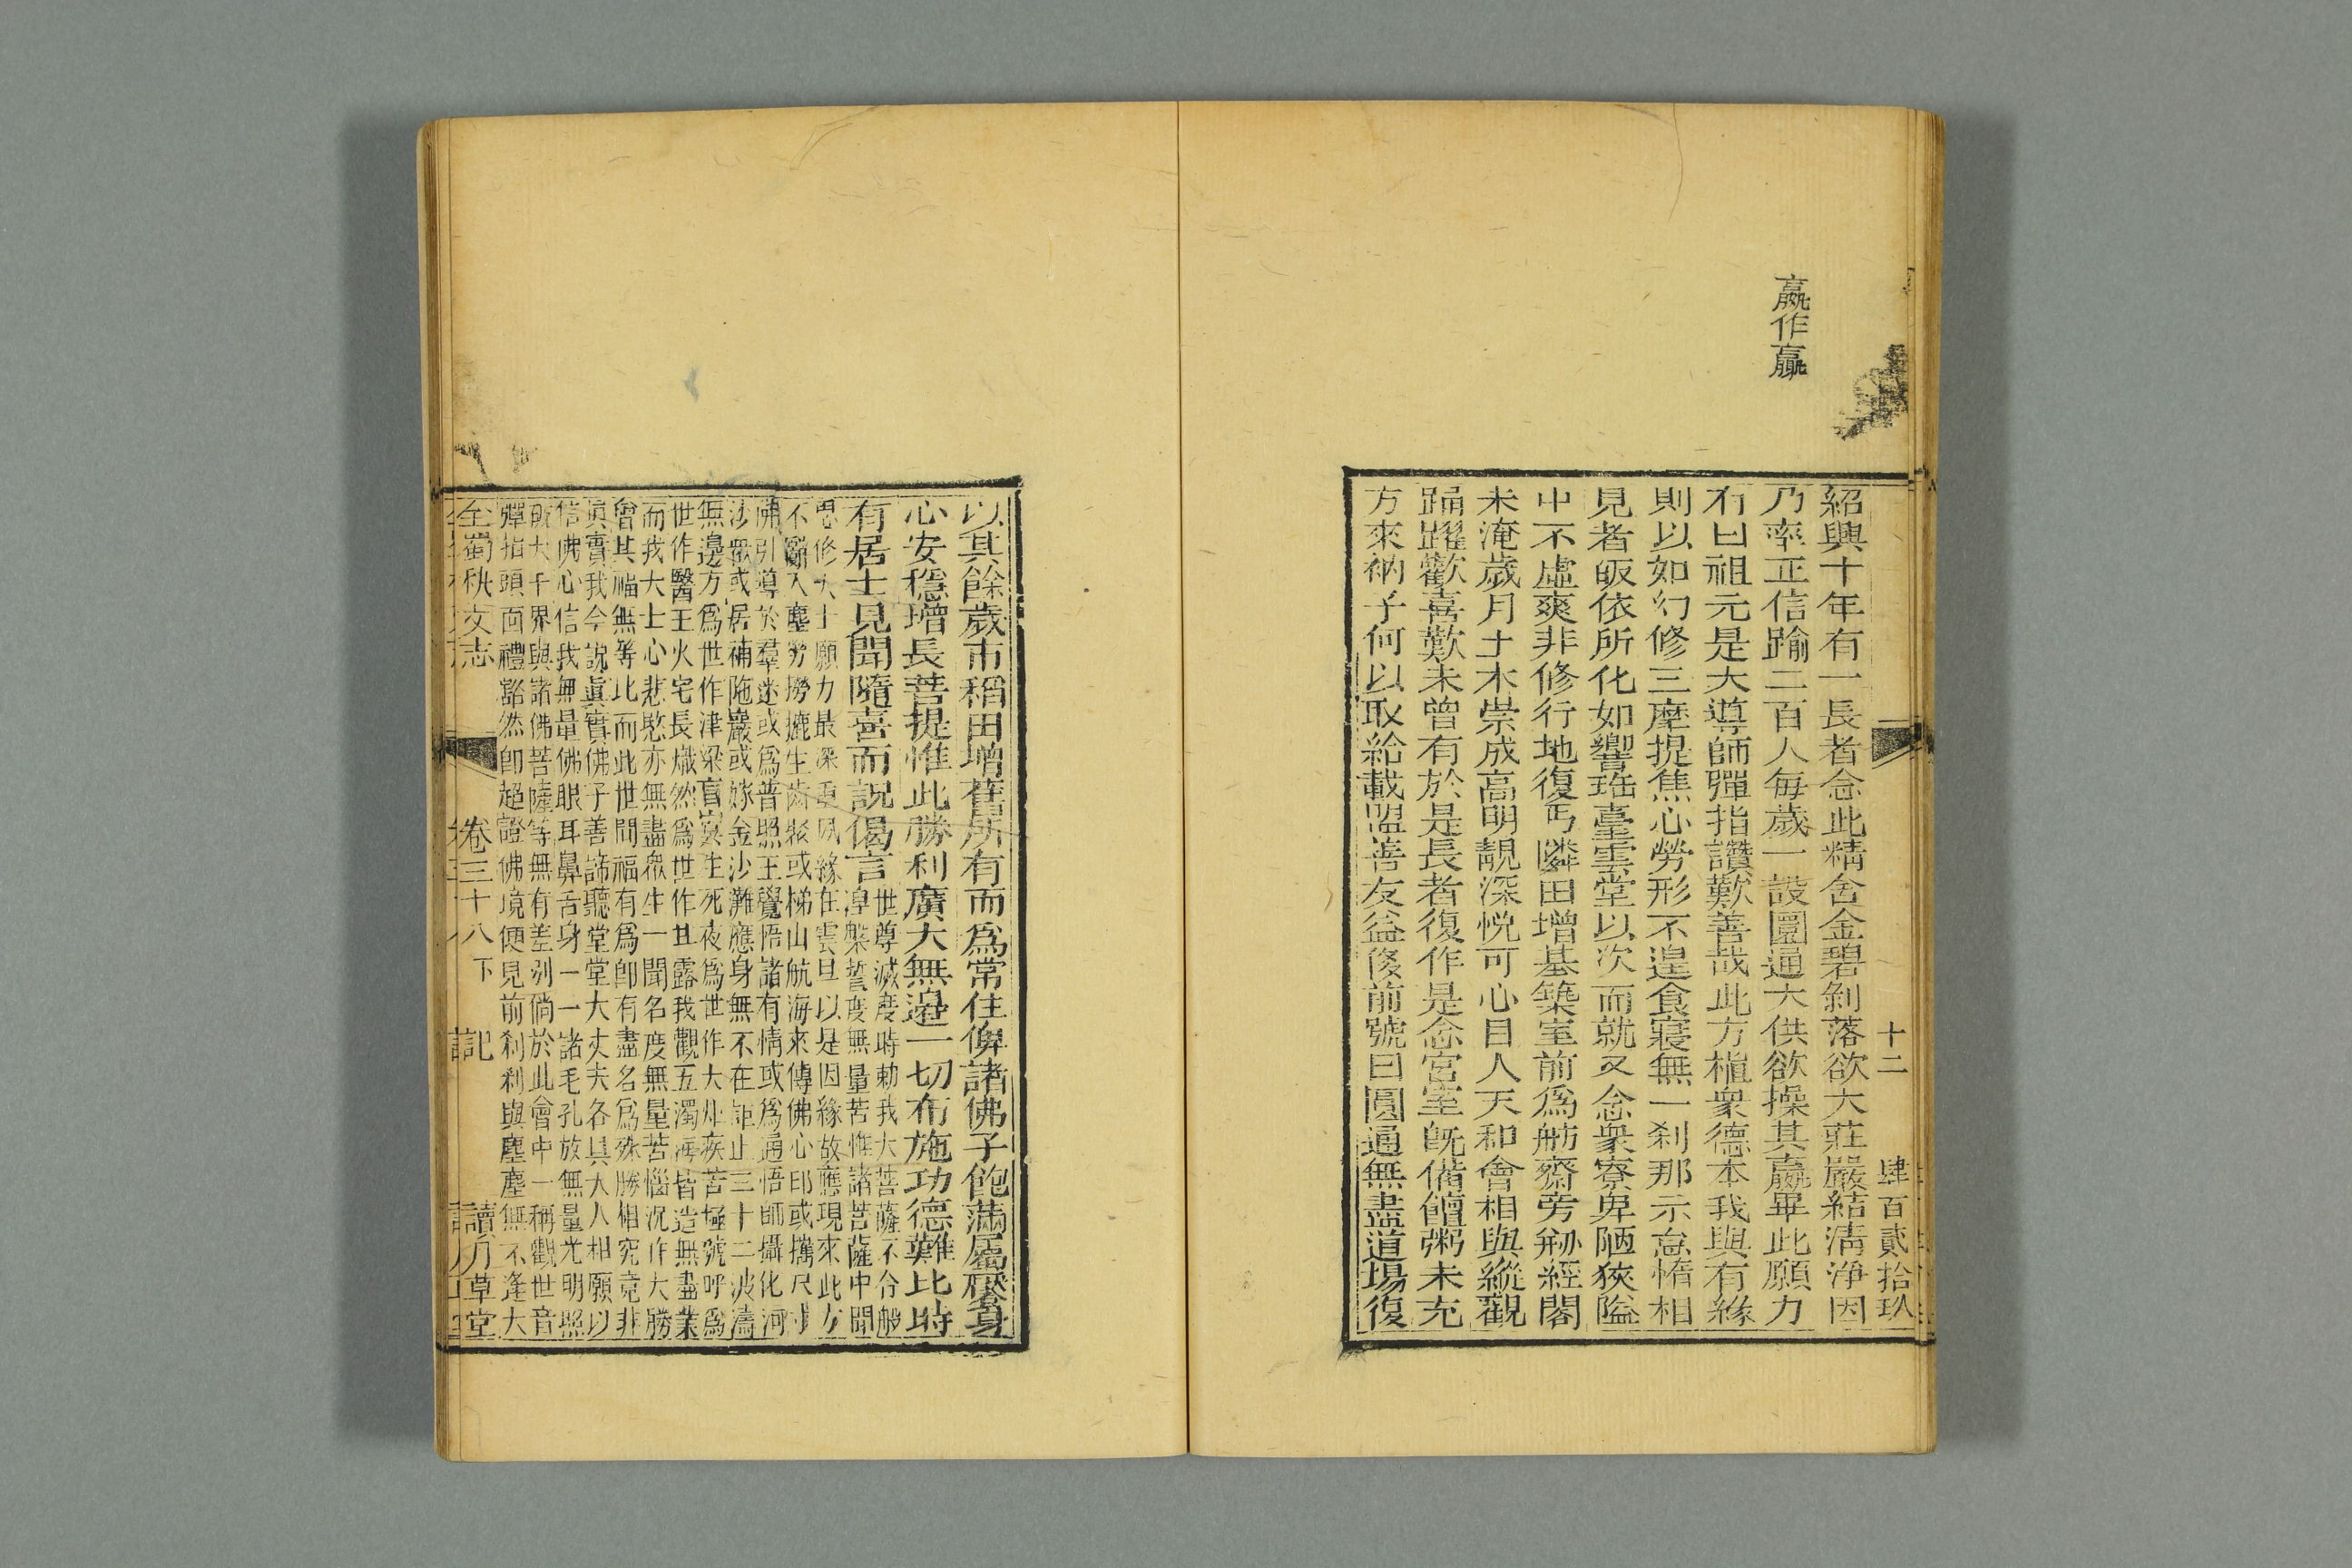 嬴作贏
十二 肆百貳拾玖
紹興十年有一長者念此精舍金碧剝落欲大莊嚴結淸淨因
乃率正信踰二百人每歲一設圓通大供欲操其嬴畢此願力
有曰祖元是大導師彈指讚歎善哉此方植衆德本我與有緣
則以如幻修三摩提焦心勞形不遑食寢無一刹那示怠惰相
見者皈依所化如響珤臺雲堂以次而就又念衆寮卑陋狹隘
中不虛爽非修行地復丐隣田增基築室前爲舫齋旁剙經閣
未淹歲月土木崇成高明靚深悅可心目人天和會相與縱觀
踊躍歡喜歎未曾有於是長者復作是念宮室旣備饘粥未充
方來衲子何以取給載盟善友益俊前號曰圓通無盡道場復
以其餘歲市稻田增舊所有而爲常住俾諸佛子飽滿屬饜身
心安穩增長菩提惟此勝利廣大無邊一切布施功德難比時
有居士見聞隨喜而說偈言
世尊滅度時勅我大菩薩不令般
湼槃誓度無量苦惟諸菩薩中聞
思修大士願力最深重夙緣在震旦以是因緣故應現來此方
不辭入塵勞撈摝生齒裂或梯山航海來傳佛心印或攜尺寸
佛引導於羣迷或爲普照王覺悟諸有情或爲通悟師攝化河
沙衆或居補陁巖或嫁金沙灘應身無不在詎止三十二波濤
無邊方爲世作津梁盲冥生死夜爲世作大炬疾苦極號呼爲
世作醫王火宅長熾然爲世作甘露我觀五濁海皆造無盡業
而我大士心悲愍亦無盡衆生一聞名度無量苦惱沉作大勝
曾其福無等比而此世間福有爲卽有盡名爲殊勝相究竟非
眞實我今說眞實佛子善諦聽堂堂大丈夫各具大人相願以
信佛心信我無量佛眼耳鼻舌身一一諸毛孔放無量光明照
破大千界與諸佛菩薩等無有差別倘於此會中一稱觀世音
彈指頭面禮豁然卽超證佛境便見前刹刹與塵塵無不逢大
全蜀秇文志 卷三十八下 記 讀月草堂